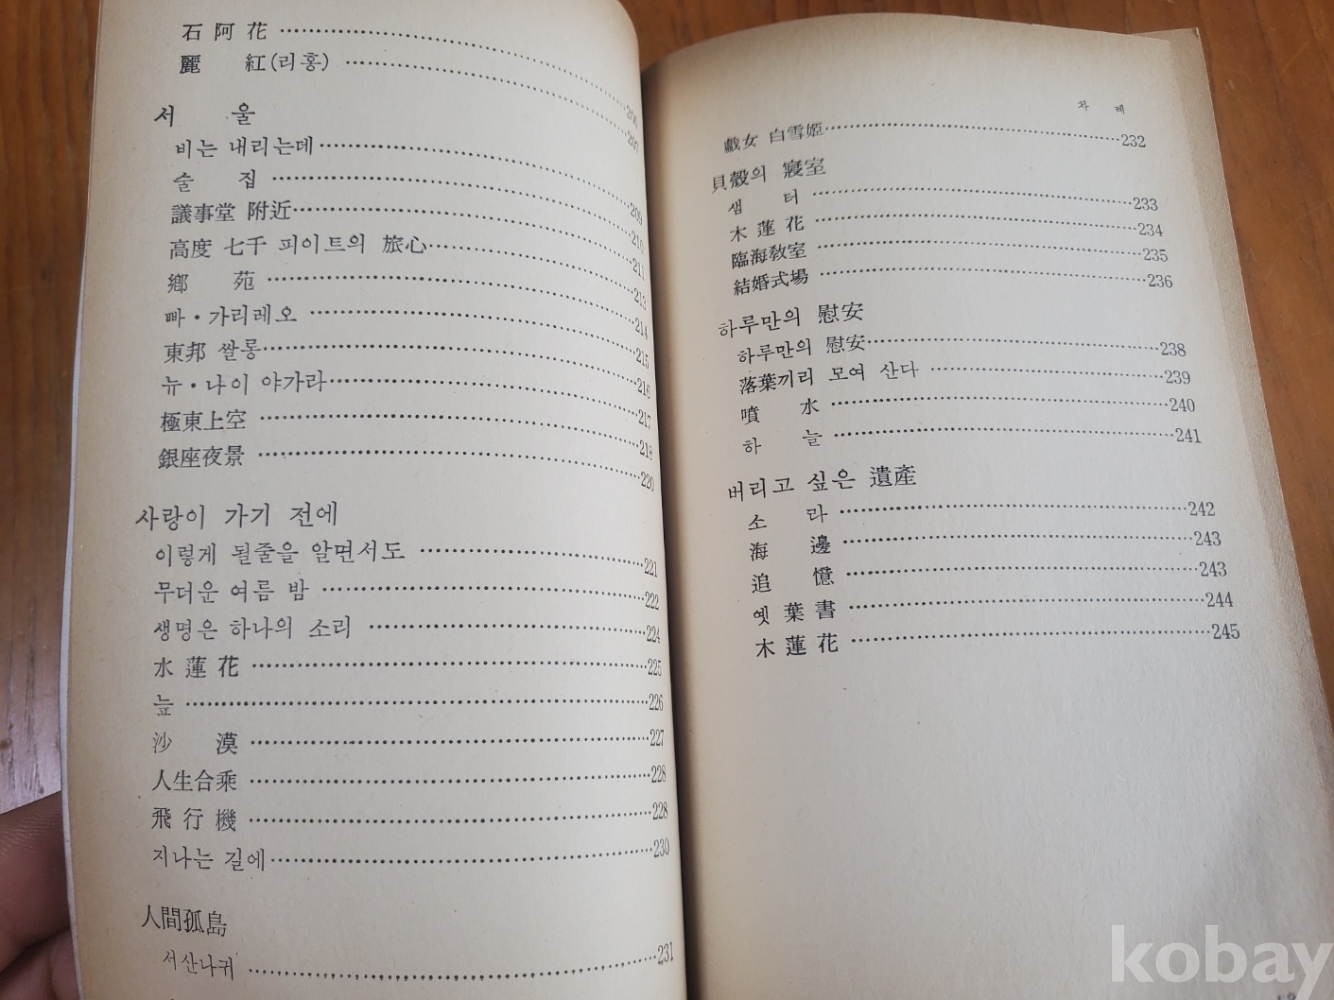 石阿花 ……206
麗 紅(리홍) ……207
서 울
비는 내리는데……209
술 집 ……210
議事堂 附近……211
高度 七千 피이트의 旅心……213
鄕 苑 ……214
빠・가리레오 ……215
東邦 쌀롱……216
뉴・나이 야가라……217
極東上空 ……218
銀座夜景 ……220
사랑이 가기 전에
이렇게 될줄을 알면서도 ……221
무더운 여름 밤 ……222
생명은 하나의 소리 ……224
水蓮花 ……225
늪 ……226
沙 漠 ……227
人生合乘 ……228
飛行機 ……228
지나는 길에……230
人間孤島
서산나귀 ……231
차 례
戱女 白雪姬……232
貝殼의 寢室
샘 터 ……233
木蓮花 ……234
臨海敎室 ……235
結婚式場 ……236
하루만의 慰安
하루만의 慰安……238
落葉끼리 모여 산다 ……239
噴 水 ……240
하 늘 ……241
버리고 싶은 遺產
소 라 ……242
海 邊 ……243
追 憶 ……243
옛葉書 ……244
木蓮花 ……245
kobay